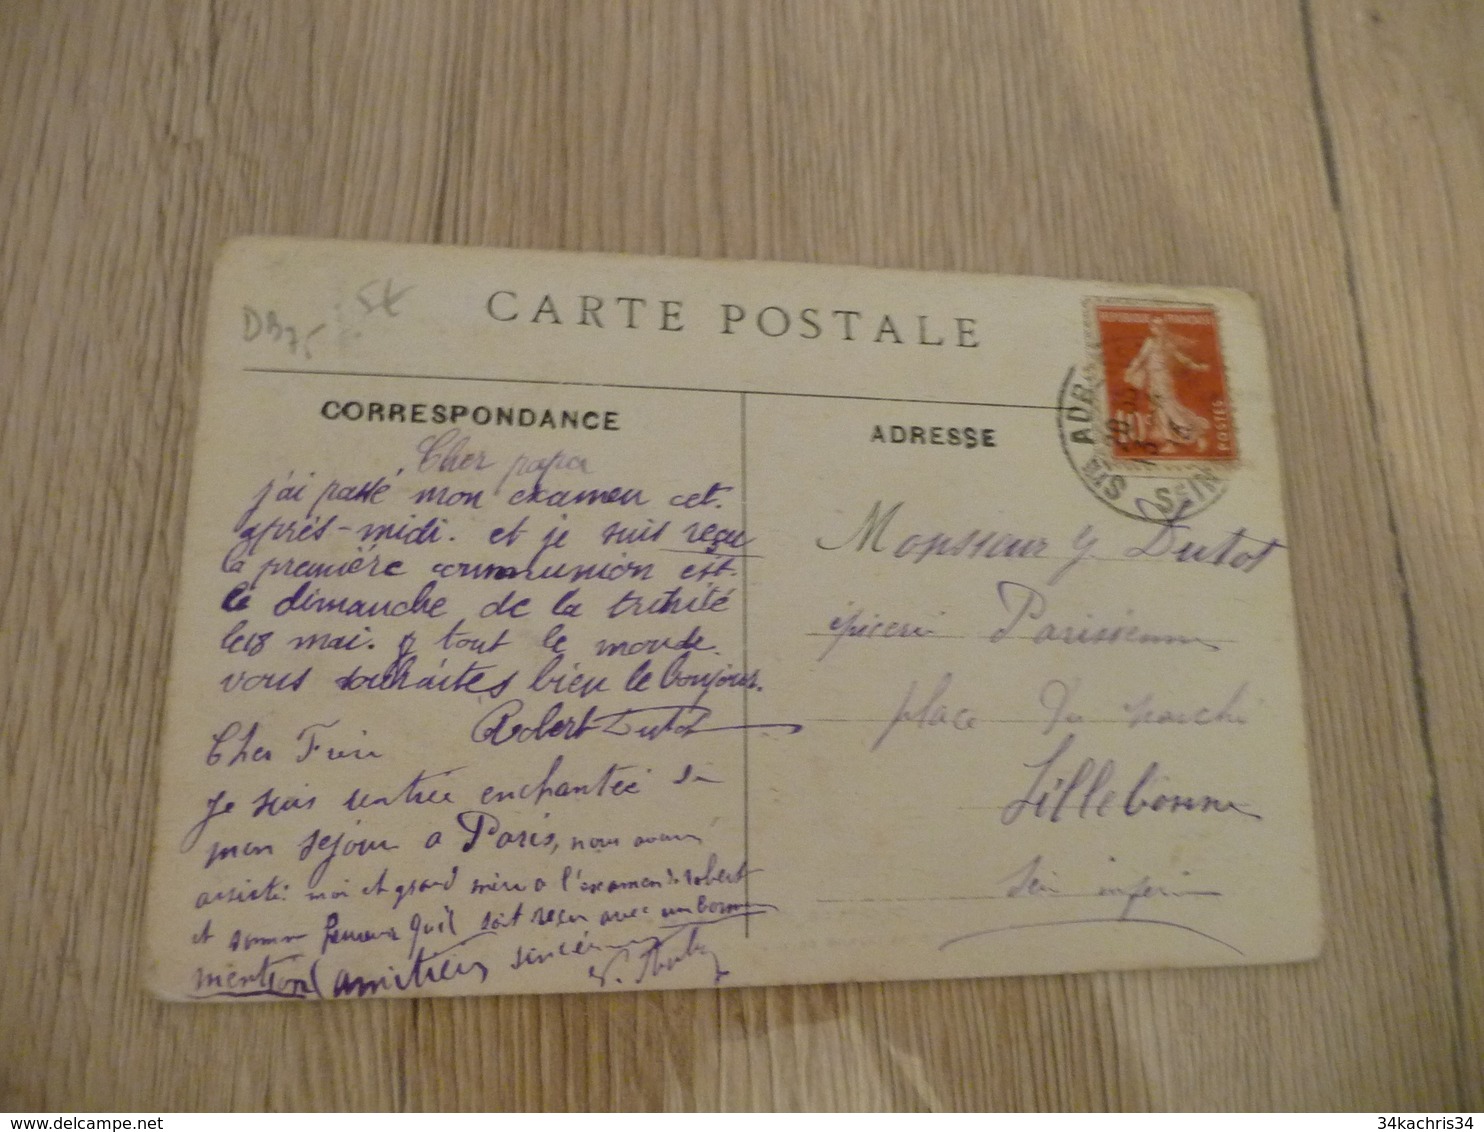 DB75 5€
CARTE POSTALE
REPUBLIQUE FRANÇAISE
10c
POSTES
Ste ADR
SEIN
CORRESPONDANCE
ADRESSE
Cher papa
j'ai passé mon examen cet.
après-midi. et je suis reçu
la première communion est.
le dimanche de la trinité
le 18 mai. Y tout le monde.
vous souhaites bien le bonjour.
Robert Dutot
Cher Frère
Je suis rentrée enchantée de
mon séjour a Paris, nous avons
assisté moi et grand mère a l'examen de robert
et somme heureux qu'il soit reçu avec un bonne
mention amitiés sincères
Monsieur G Dutot
épicerie Parisienne
place du marché
Lillebonne
Sein inferie
34kachris34